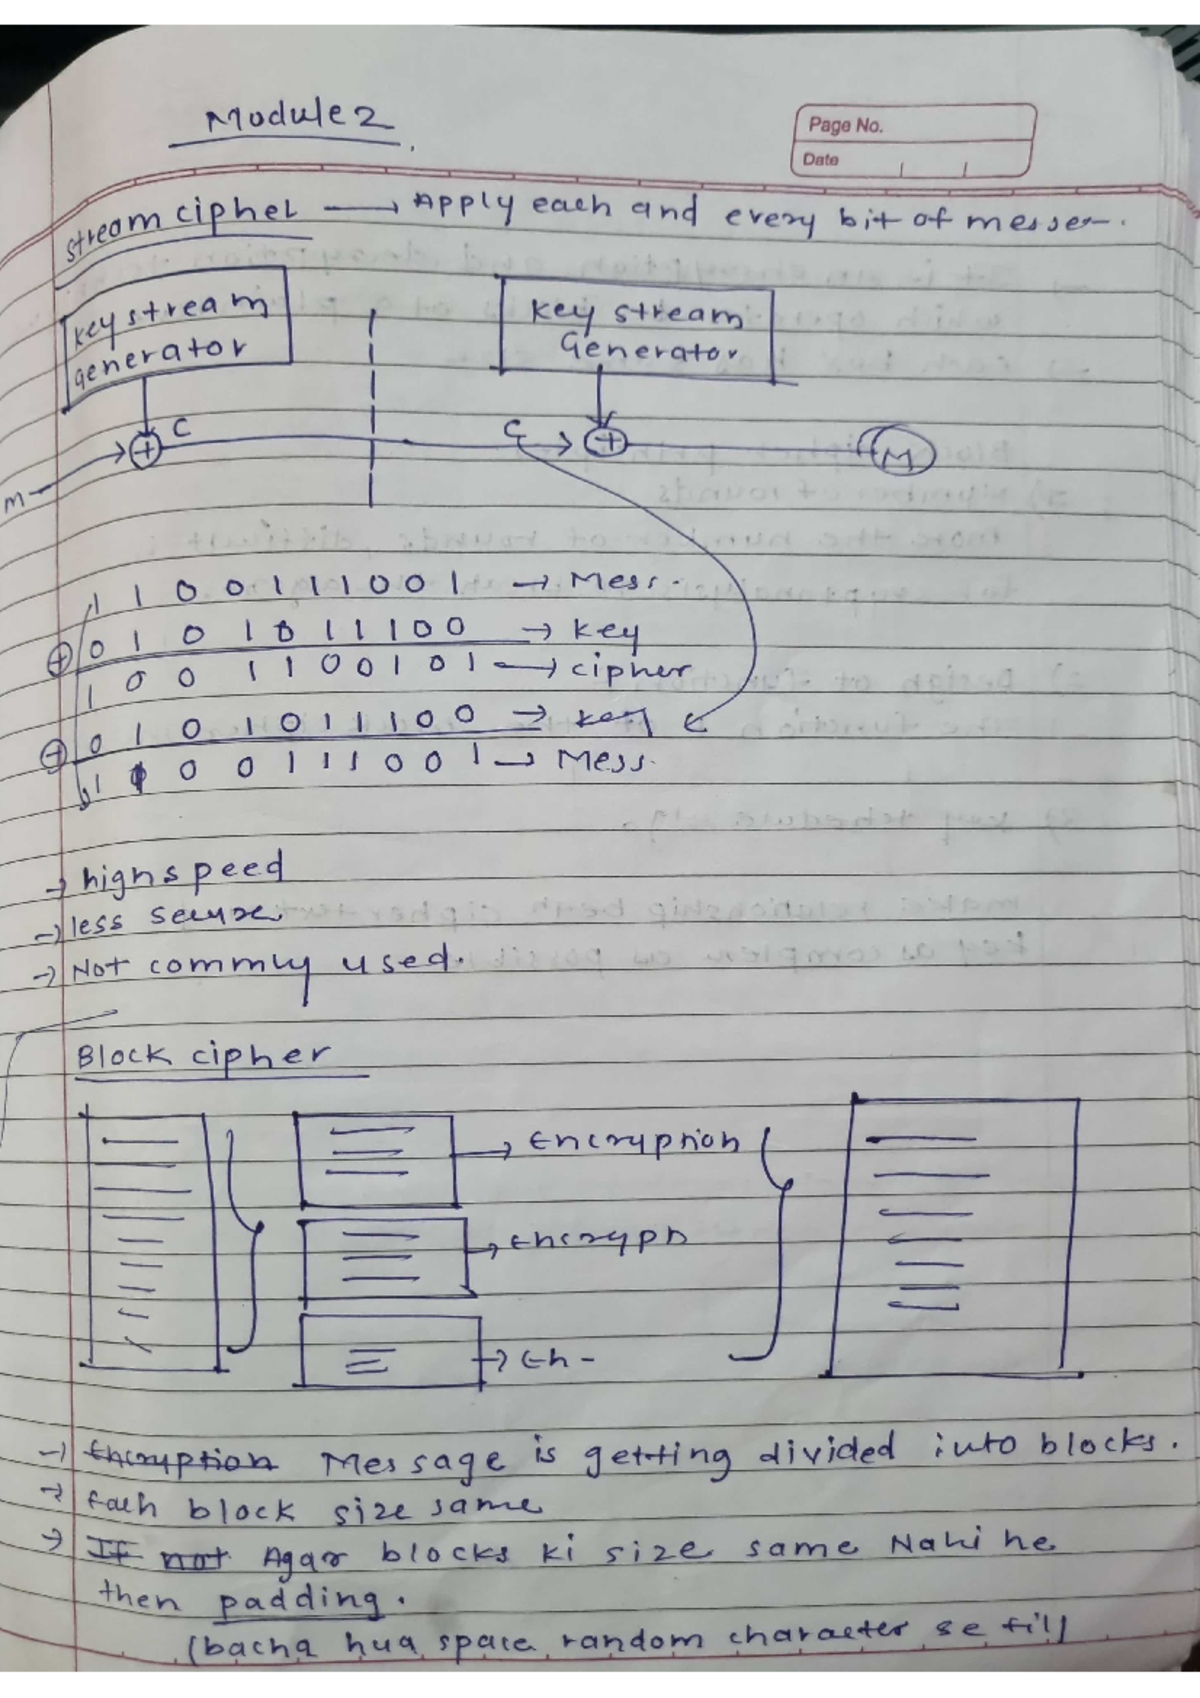 Module 2
Page No.
Date
stream cipher → Apply each and every bit of messe
key stream generator
key stream Generator
C
C
M
M
1 1 0 0 1 1 1 0 0 1 → Mess.
⊕ 0 1 0 1 0 1 1 1 0 0 → key
1 0 0 1 1 0 0 1 0 1 → cipher
⊕ 0 1 0 1 0 1 1 1 0 0 → key
1 1 0 0 1 1 1 0 0 1 → Mess.
→ high speed
→ less secure
→ Not commly used.
Block cipher
→ Encryption
→ Encryptn
→ En -
→ Encryption Message is getting divided into blocks.
→ Each block size same
→ If not Agar blocks ki size same Nahi he
then padding.
(bacha hua space random character se fill